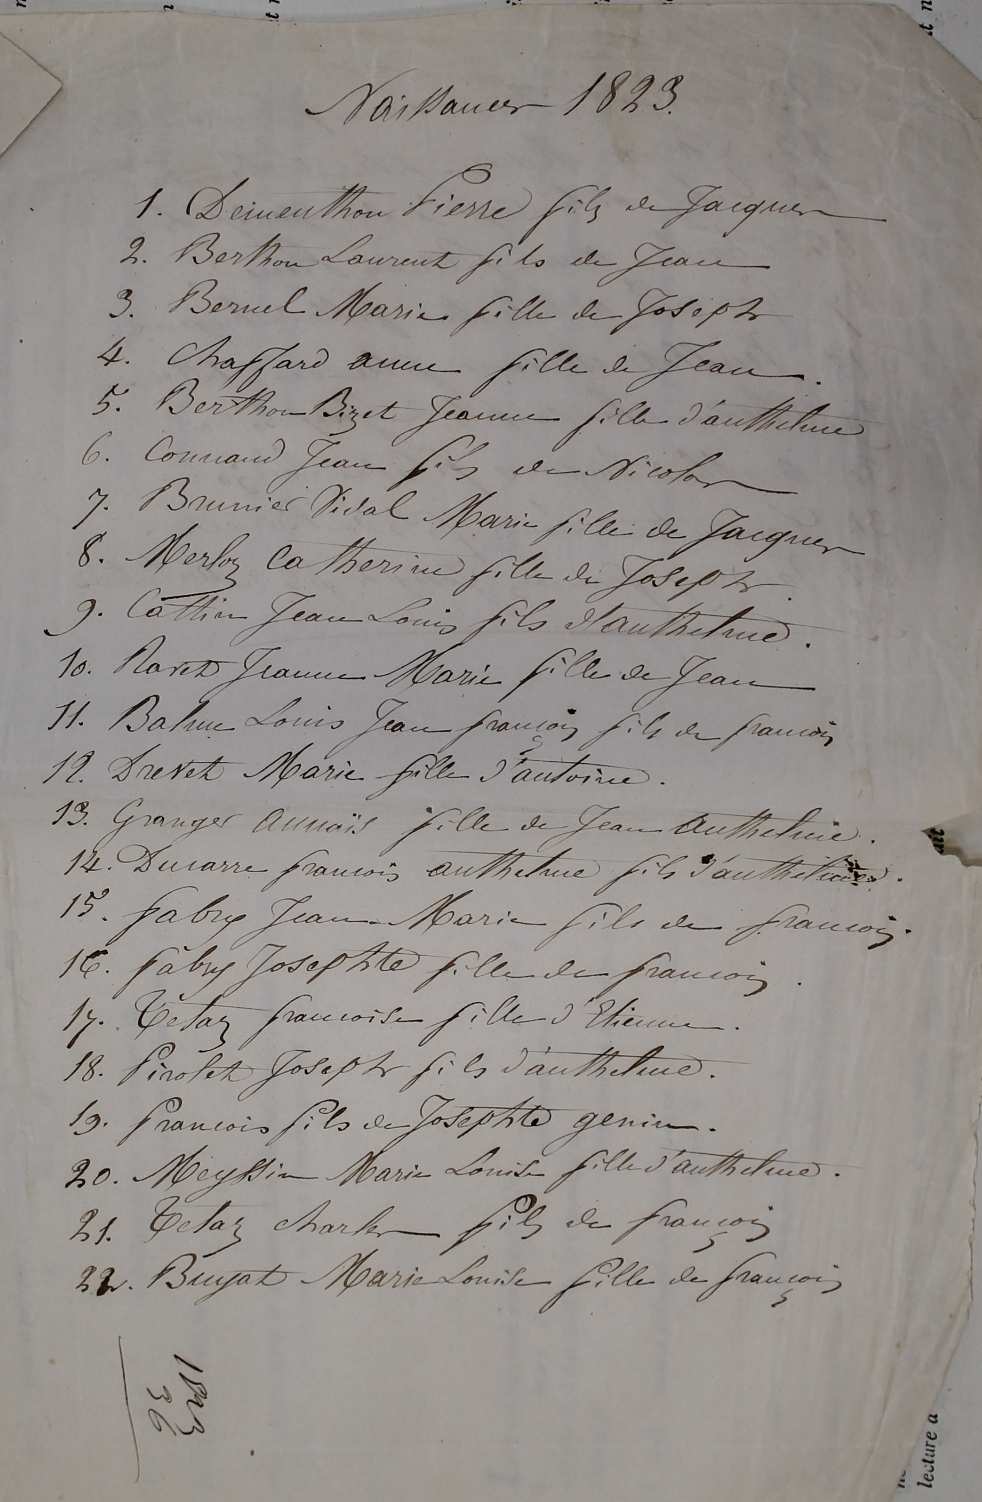 Naissances 1823.
1. Dementhon Pierre fils de Jacques
2. Berthon Laurent fils de Jean
3. Bernel Marie fille de Joseph
4. Chaffard anne fille de Jean.
5. Berthon Bizet Jeanne fille d'anthelme
6. Connand Jean fils de Nicolas
7. Brunier Vidal Marie fille de Jacques
8. Merloz Catherine fille de Joseph.
9. Cattin Jean Louis fils d'anthelme.
10. Ravet Jeanne Marie fille de Jean
11. Balme Louis Jean françois fils de francois
12. Drevet Marie fille d'antoine.
13. Granger Annaïs fille de Jean Anthelme.
14. Ducarre francois anthelme fils d'anthelme.
15. fabry Jean-Marie fils de francois.
16. fabry Josephte fille de francois.
17. Tétaz francoise fille d'Etienne.
18. Pirolet Joseph fils d'anthelme.
19. francois fils de Josephte genin.
20. Meyssin Marie Louise fille d'anthelme.
21. Tetaz charles fils de françois
22. Buyat Marie Louise fille de françois
1823
lecture a